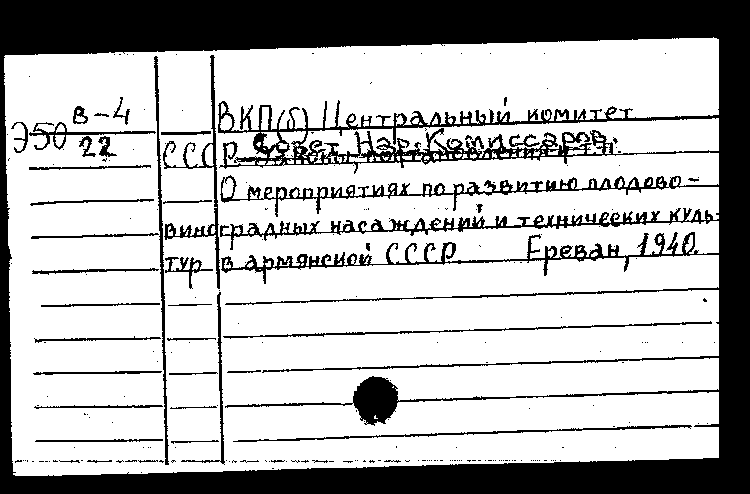 Э50 в-4
22
ВКП(б) Центральный комитет
СССР Совет Нар. Комиссаров.
Законы, постановления и т.п.
О мероприятиях по развитию плодово-
виноградных насаждений и технических куль-
тур в армянской СССР Ереван, 1940.